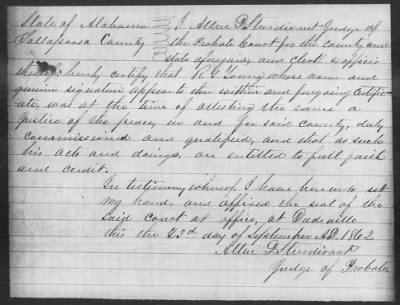 State of Alabama } I Allen D Sturdivant Judge of
Tallapoosa County } the Probate Court for the county and
state aforesaid, and Clerk ex officio
thereof hereby certify that R G Young whose name and
genuine signature appear to the written and foregoing Certific-
ate, was at the time of attesting the same a
Justice of the peace in and for said county, duly
commissioned and qualified, and that as such
his acts and doings, are entitled to full faith
and credit.
In testimony whereof, I have hereunto set
my hand, and affixed the seal of the
said Court at office, at Dadeville
this the 23d day of September AD. 1862
Allen D. Sturdivant
Judge of Probate